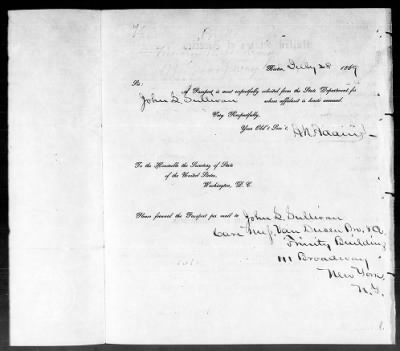 Boston, July 28 1869
Sir:
A Passport is most respectfully solicited from the State Department for
John L. Sullivan whose affidavit is hereto annexed.
Very Respectfully,
Your Obd't Serv't,
To the Honorable the Secretary of State
of the United States,
Washington, D. C.
Please forward the Passport per mail to John L. Sullivan
Care Van Dusen Bro.
Trinity Building
111 Broadway
New York
N.Y.